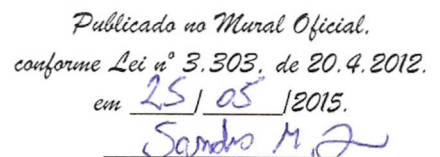 Publicado no Mural Oficial,
conforme Lei nº 3.303, de 20.4.2012.
em 25/ 05 /2015.
Sandro M.